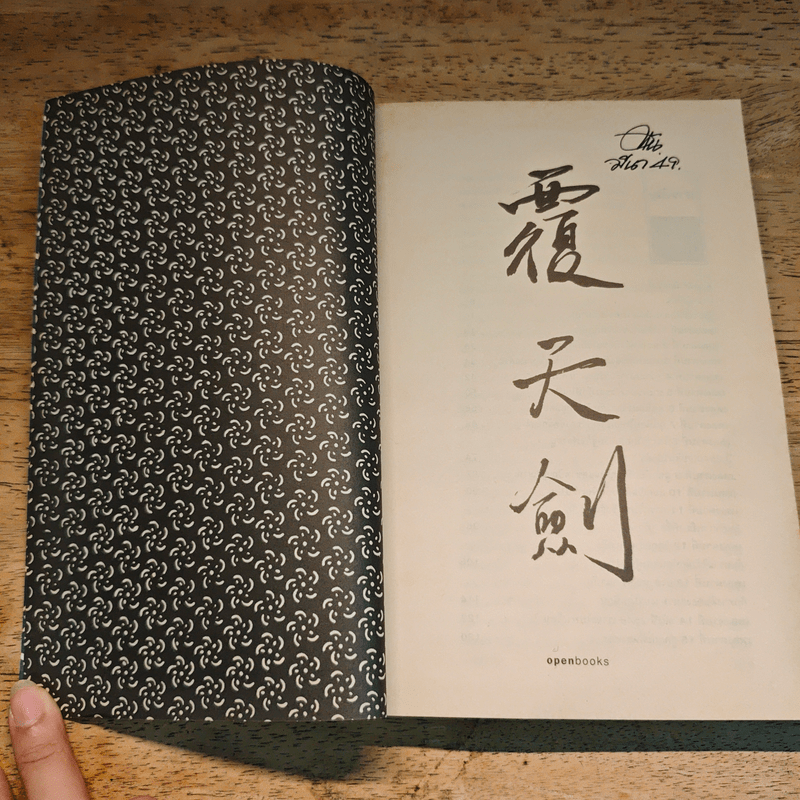 มีนา 49.
覆
天
劍
openbooks